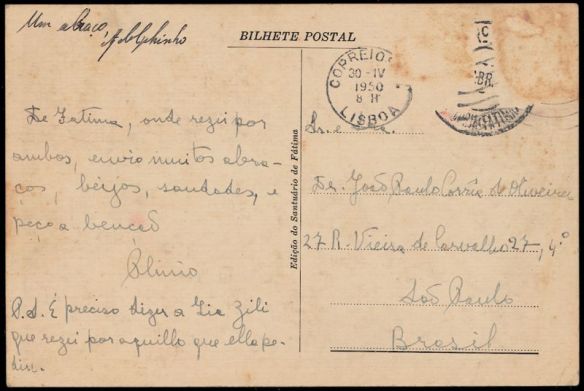 Um abraço,
Adolphinho
BILHETE POSTAL
CORREIOS
30-IV
1950
8 H
LISBOA
De Fatima, onde rezei por
ambos, envio muitos abra-
ços, beijos, saudades, e
peço a benção
Plinio
P.S. É preciso dizer a Tia Zili
que rezei por aquillo que ella pe-
diu.
Edição do Santuário de Fátima
Sr. e Sra.
Dr. João Paulo Corrêa de Oliveira
27 R. Vieira de Carvalho 27, 4º
São Paulo
Brasil